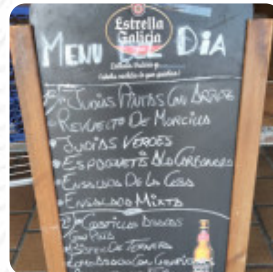 Estrella
Galicia
MENU DEL DIA
1º JUDIAS PINTAS CON ARROZ
• REVUELTO DE MORCILLA
• JUDIAS VERDES
• ESPAGUETIS A LA CARBONARA
• ENSALADA DE LA CASA
• ENSALADA MIXTA
2º COSTILLAS ASADAS
CON
DE TERNERA